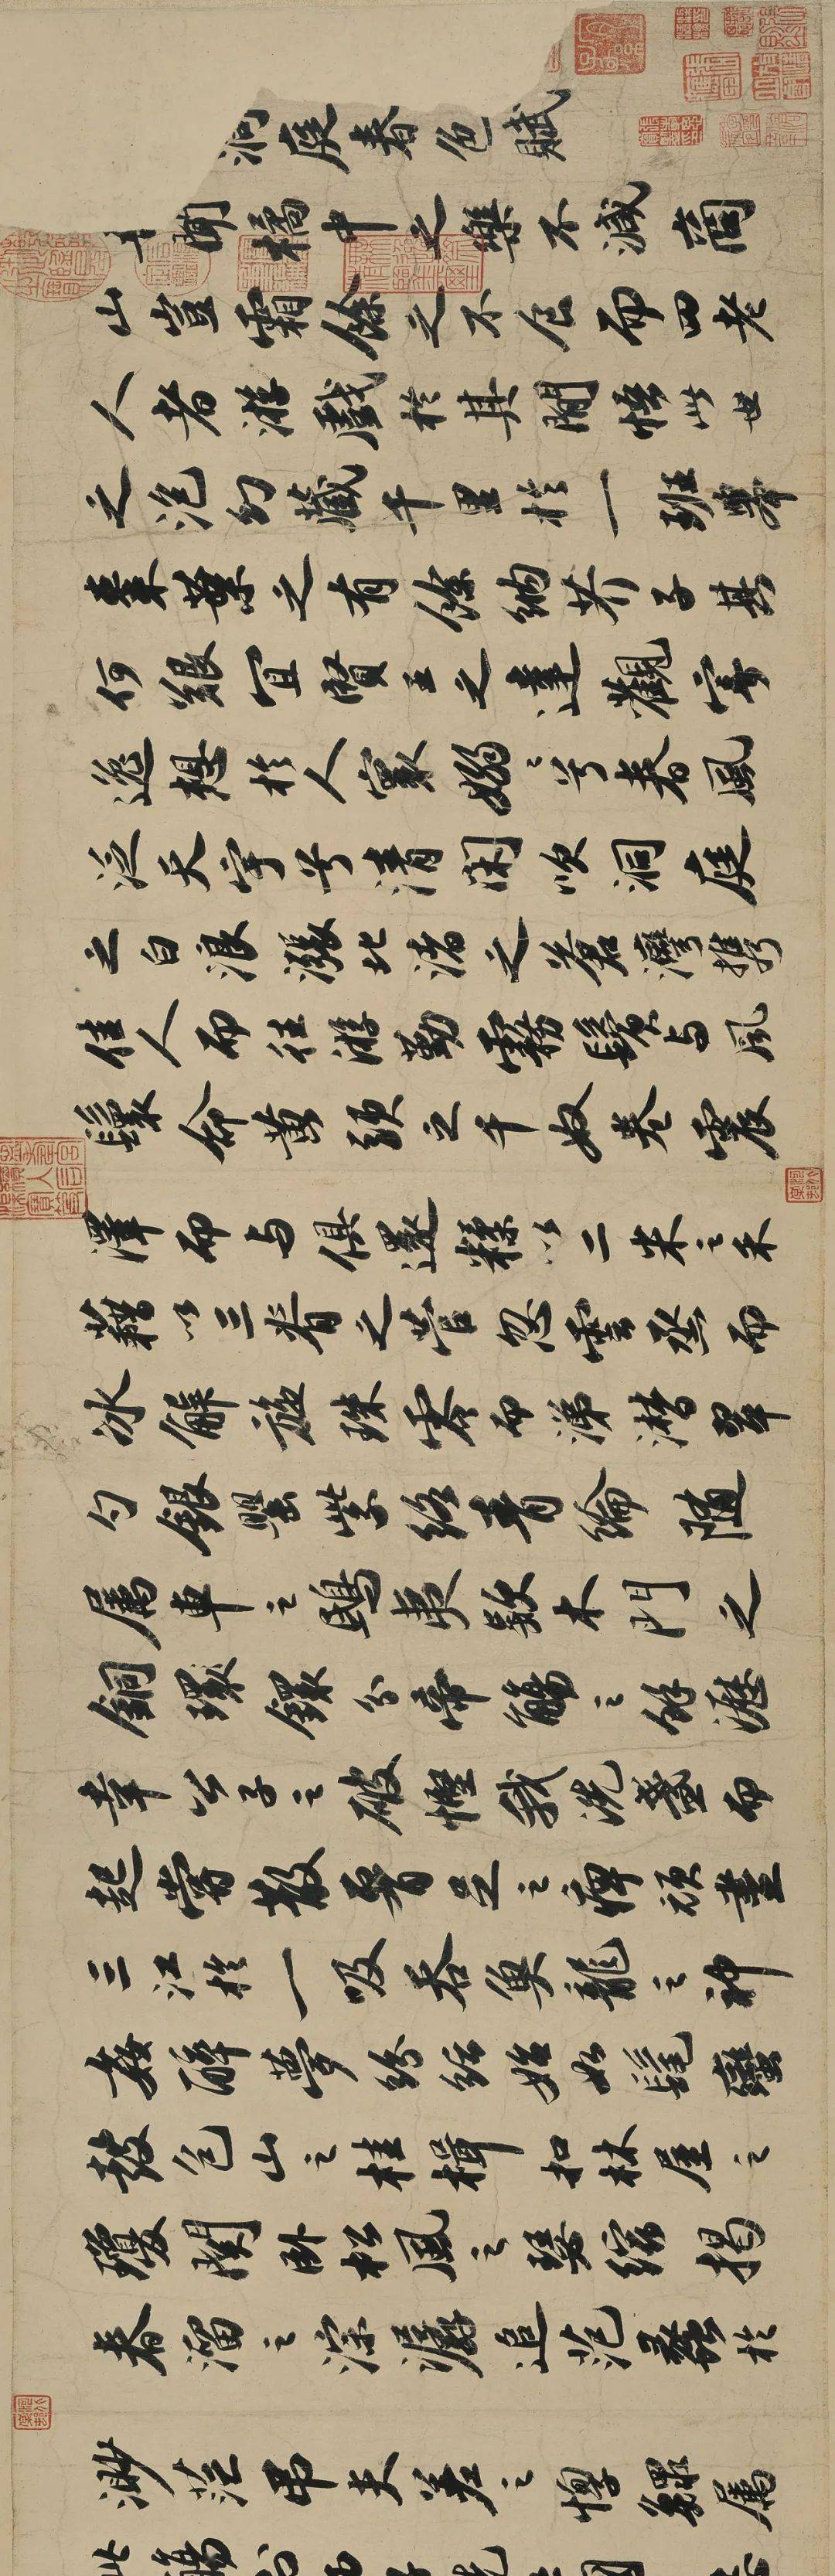 洞庭春色賦
聞橘中之樂不減商
山豈霜餘之不食而四老
人者游戲於其間悟此世
之泡幻藏千里於一班舉
棗葉之有餘納芥子其
何艱宜賢王之達觀寄
逸想於人寰嫋〻兮春風
泛天宇兮清閑吹洞庭
之白浪漲北渚之蒼灣携
佳人而往游勤霧鬢与風
鬟命黃頭之千奴卷震
澤而与俱還糅以二米之禾
藉以三脊之菅忽雲烝而
冰解旋珠零而涕潸翠
勺銀罌紫絡青綸隨
属車之鴟夷款木門之
銅環鐶分帝觴之餘瀝
幸公子之破慳我洗盞而
起嘗散腰足之痹頑盡
三江於一吸吞魚龍之神
姦醉夢紛紜始如髦蠻
鼓包山之桂楫扣林屋之
瓊關卧松風之瑟縮揭
春溜之淙潺追范蠡於
渺茫吊夫差之惸鰥属
此觴